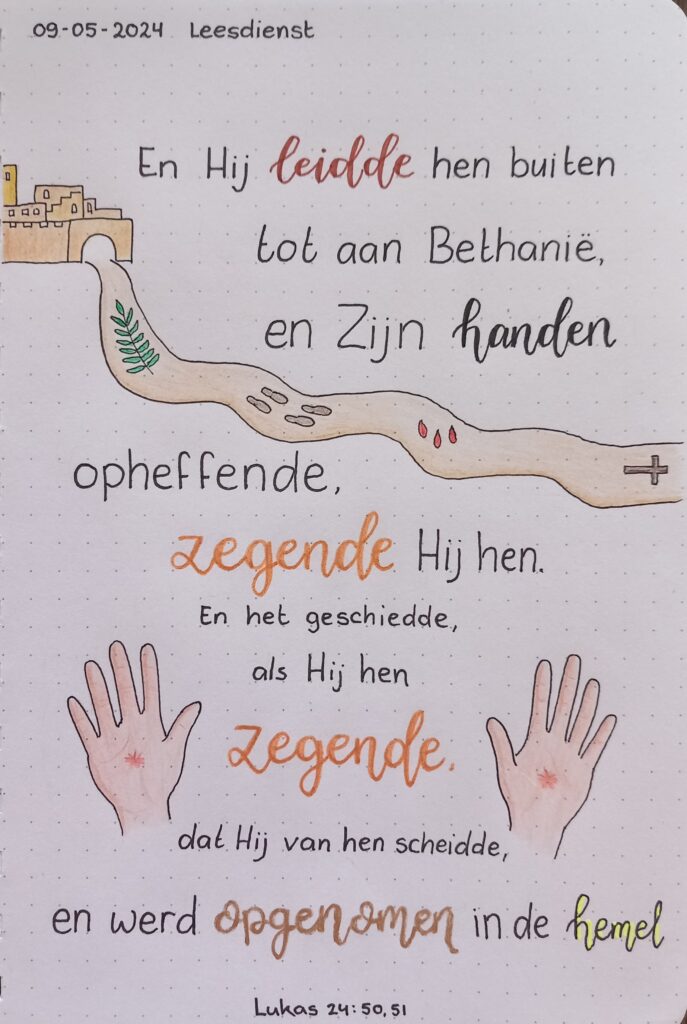 09-05-2024 Leesdienst
En Hij leidde hen buiten
tot aan Bethanië,
en Zijn handen
opheffende,
zegende Hij hen.
En het geschiedde,
als Hij hen
zegende.
dat Hij van hen scheidde,
en werd opgenomen in de hemel
Lukas 24:50,51